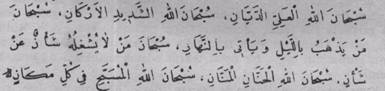 سُبْحَانَ اللهِ الْعَلِيِّ الدَّيَّانِ. سُبْحَانَ اللهِ الشَّدِيدِ الْاَرْكَانِ. سُبْحَانَ
مَنْ يَذْهَبُ بِالَّيْلِ وَيَأْتِى بِالنَّهَارِ. سُبْحَانَ مَنْ لَايُشْغِلُهُ شَأْنٌ عَنْ
شَأْنٍ. سُبْحَانَ اللهِ الْحَنَّانِ الْمَنَّانِ. سُبْحَانَ اللهِ الْمُسَبَّحِ فِى كُلِّ مَكَانٍ